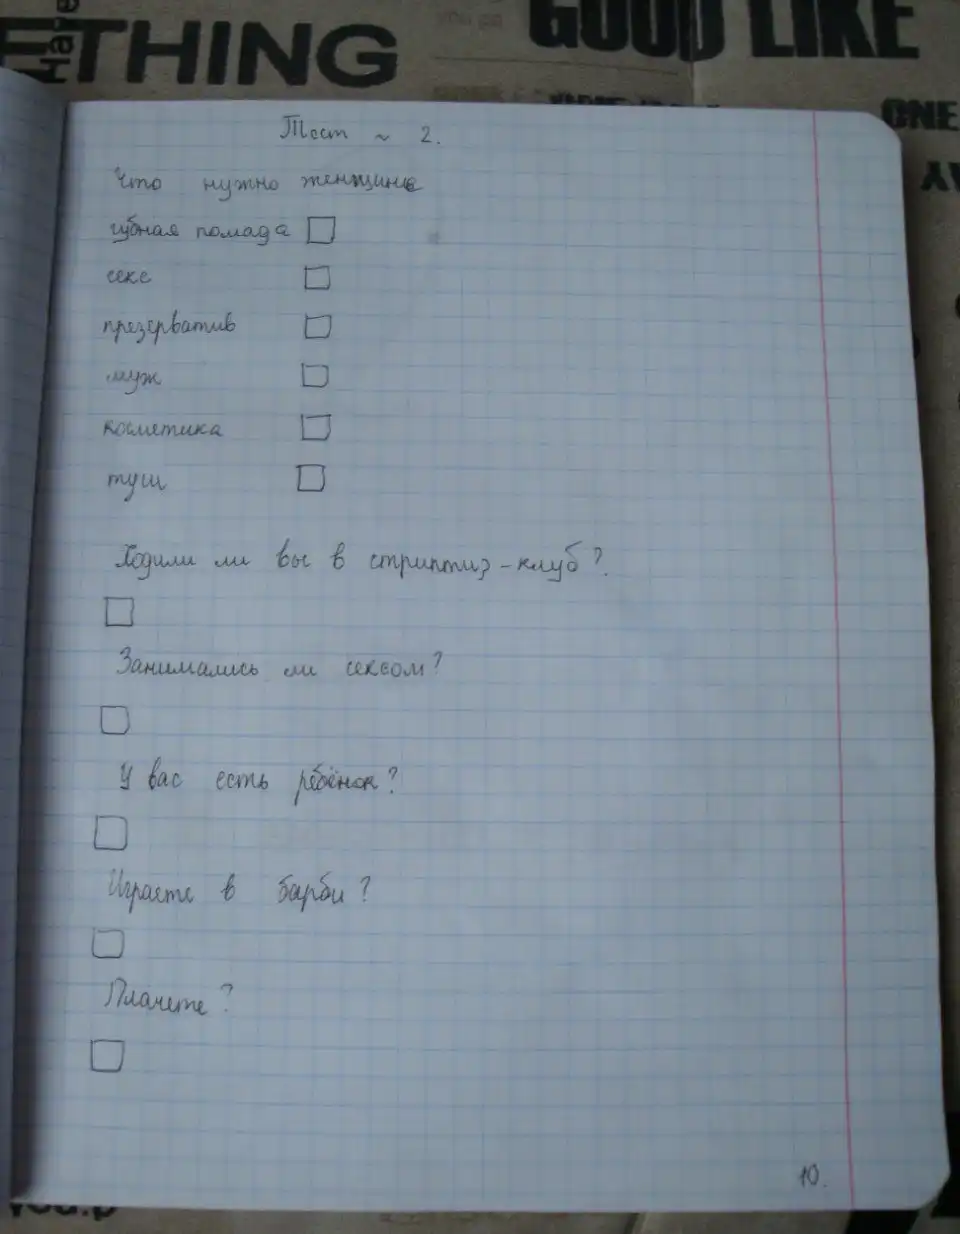 THING
GOOD LIKE
ONE
Тест ~ 2.
Что нужно женщине
губная помада
секс
презерватив
муж
косметика
туш
Ходили ли вы в стриптиз-клуб?
Занимались ли сексом?
У вас есть ребёнок?
Играете в барби?
Плачете?
10.